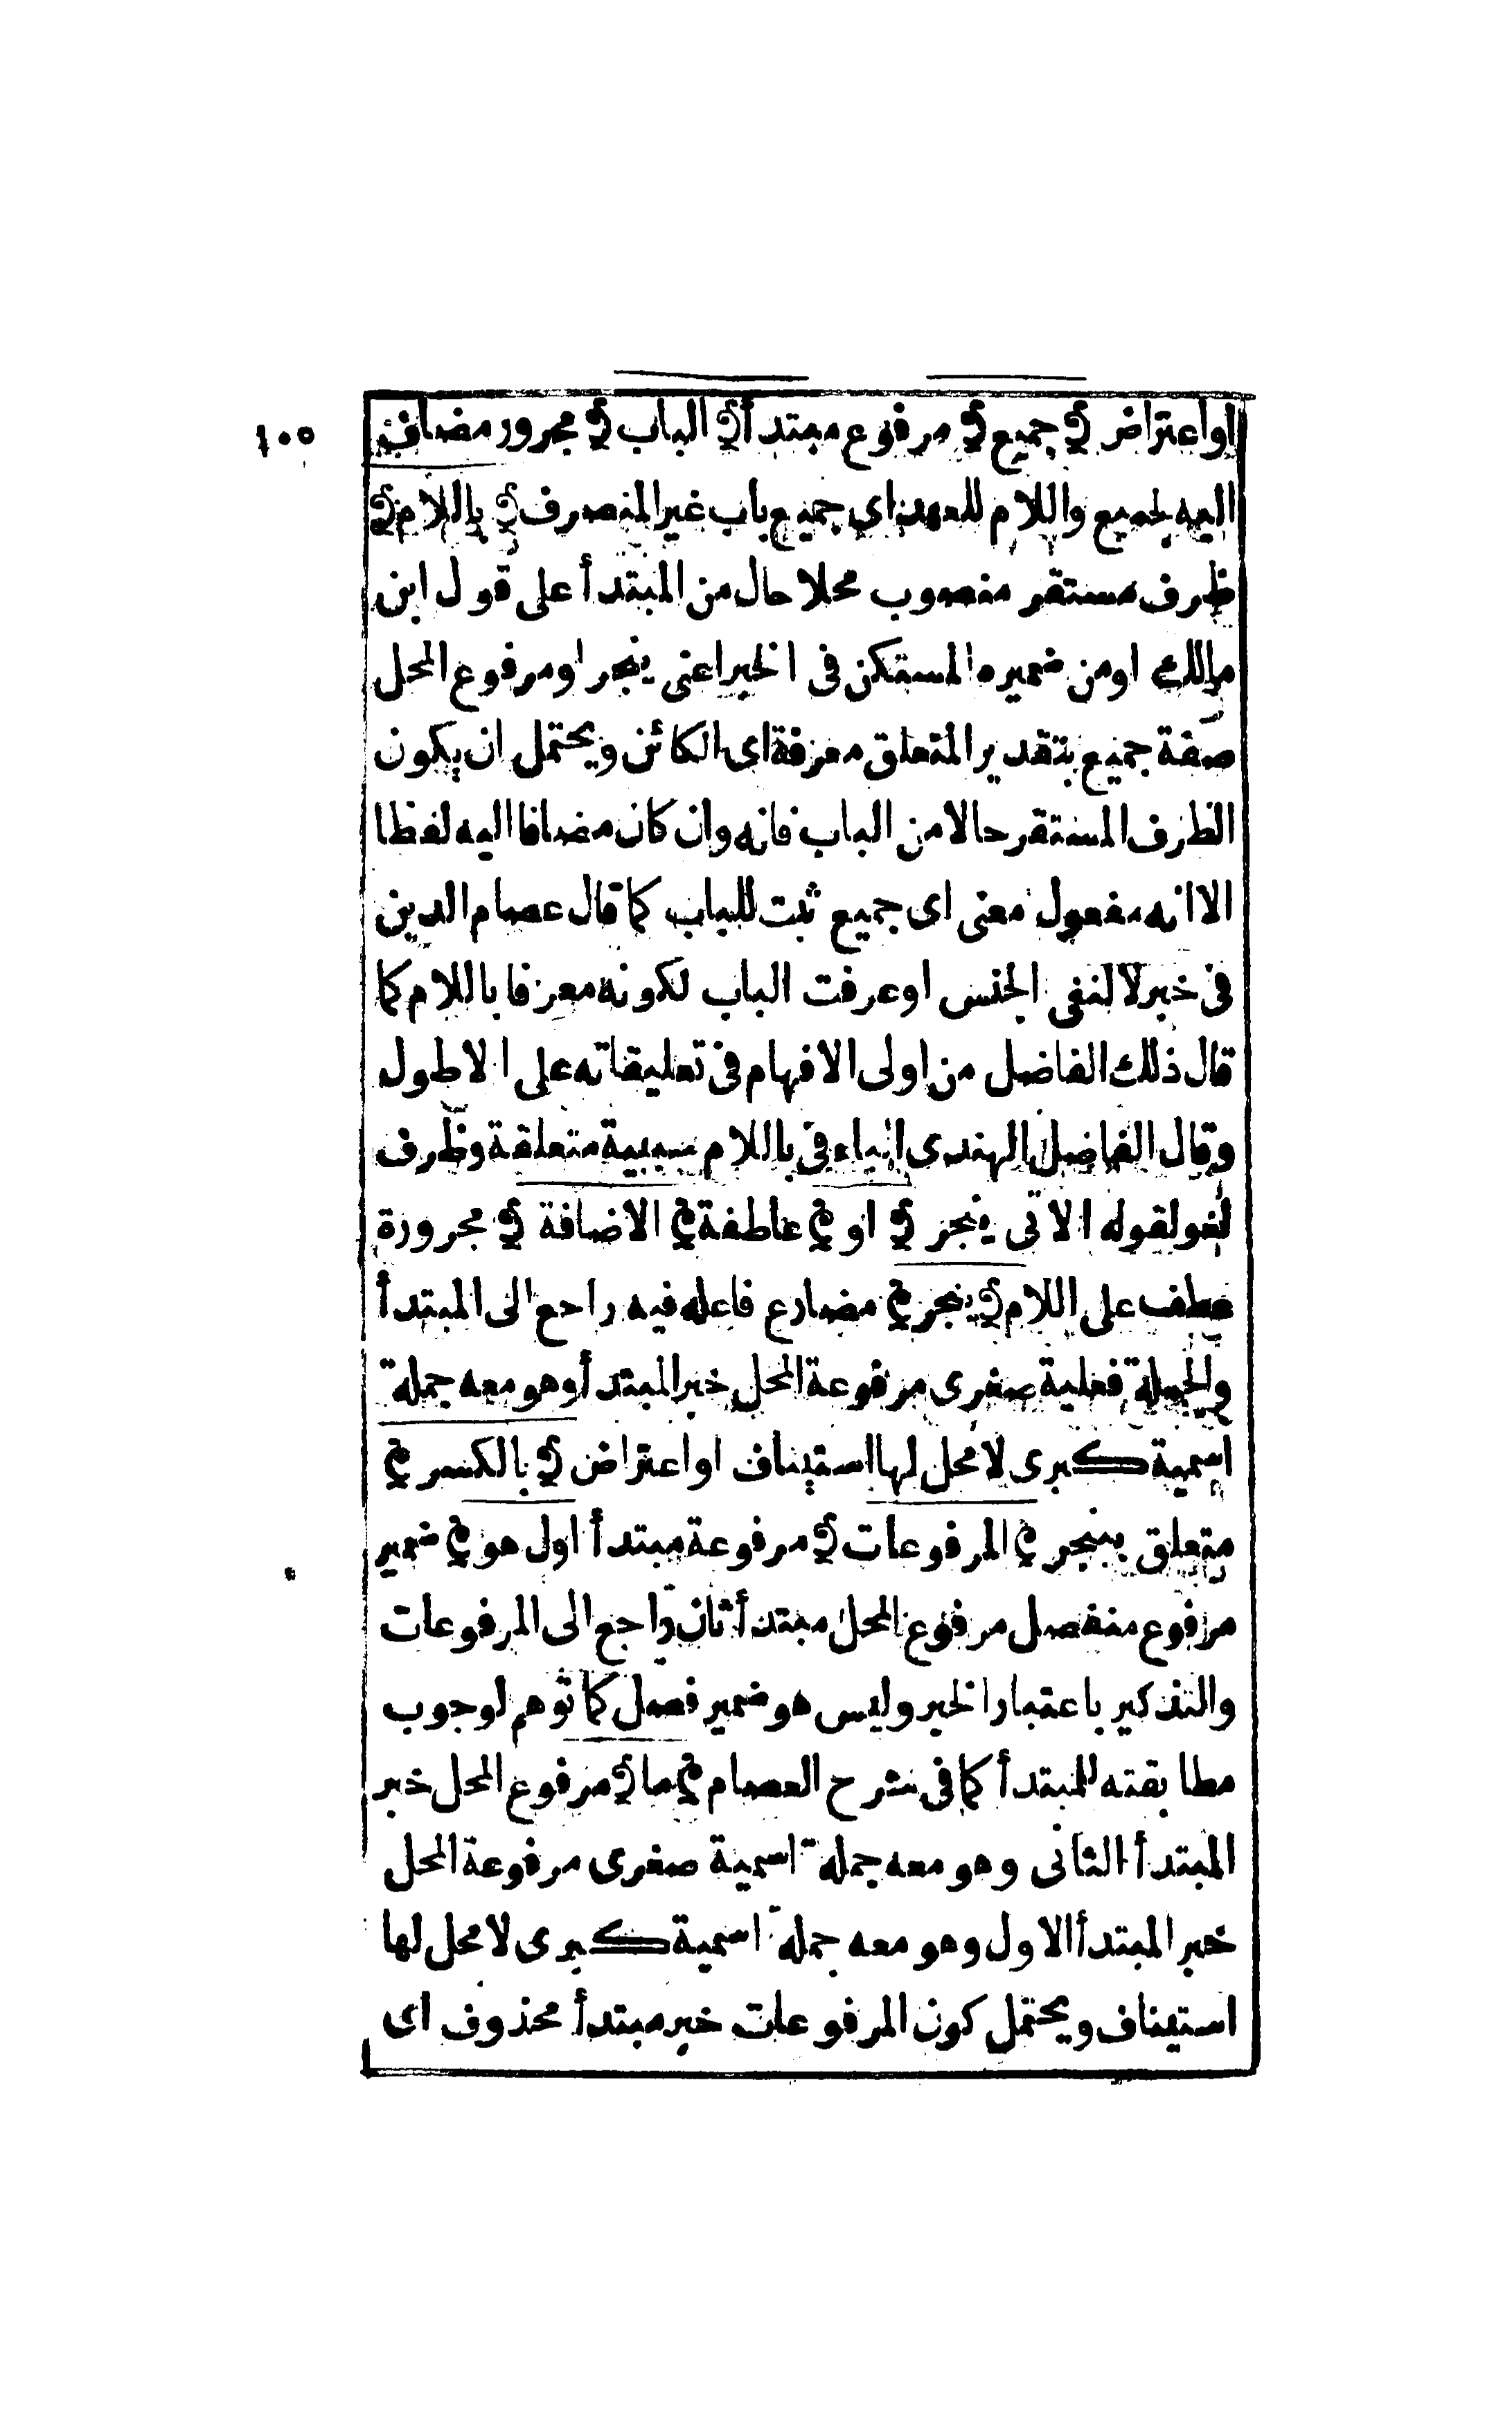 ١٠٥
او اعتراض ﴿ جميع ﴾ مرفوع مبتدأ ﴿ الباب ﴾ مجرور مضاف
اليه لجميع واللام للعهد اى جميع باب غير المنصرف ﴿ باللام ﴾
ظرف مستقر منصوب محلا حال من المبتدأ على قول ابن
مالك او من ضميره المستكن فى الخبر اعنى ينجر او مرفوع المحل
صفة جميع بتقدير المتعلق معرفة اى الكائن ويحتمل ان يكون
الظرف المستقر حالا من الباب فانه وان كان مضافا اليه لفظا
الا انه مفعول معنى اى جميع ثبت للباب كما قال عصام الدين
فى خبر لا لنفى الجنس او عرفت الباب لكونه معرفا باللام كما
قال ذلك الفاضل من اولى الافهام فى تعليقاته على الاطول
وقال الفاضل الهندى الباء فى باللام سببية متعلقة وظرف
لغو لقوله الاتى ينجر ﴿ او ﴾ عاطفة ﴿ الاضافة ﴾ مجرورة
عطف على اللام ﴿ ينجر ﴾ مضارع فاعله فيه راجع الى المبتدأ
والجملة فعلية صغرى مرفوعة المحل خبر المبتدأ وهو معه جملة
اسمية كبرى لا محل لها استيناف او اعتراض ﴿ بالكسر ﴾
متعلق بينجر ﴿ المرفوعات ﴾ مرفوعة مبتدأ اول ﴿ هو ﴾ ضمير
مرفوع منفصل مرفوع المحل مبتدأ ثان راجع الى المرفوعات
والتذكير باعتبار الخبر وليس هو ضمير فصل كما توهم لوجوب
مطابقته للمبتدأ كما فى شرح العصام ﴿ ما ﴾ مرفوع المحل خبر
المبتدأ الثانى وهو معه جملة اسمية صغرى مرفوعة المحل
خبر المبتدأ الاول وهو معه جملة اسمية كبرى لا محل لها
استيناف ويحتمل كون المرفوعات خبر مبتدأ محذوف اى